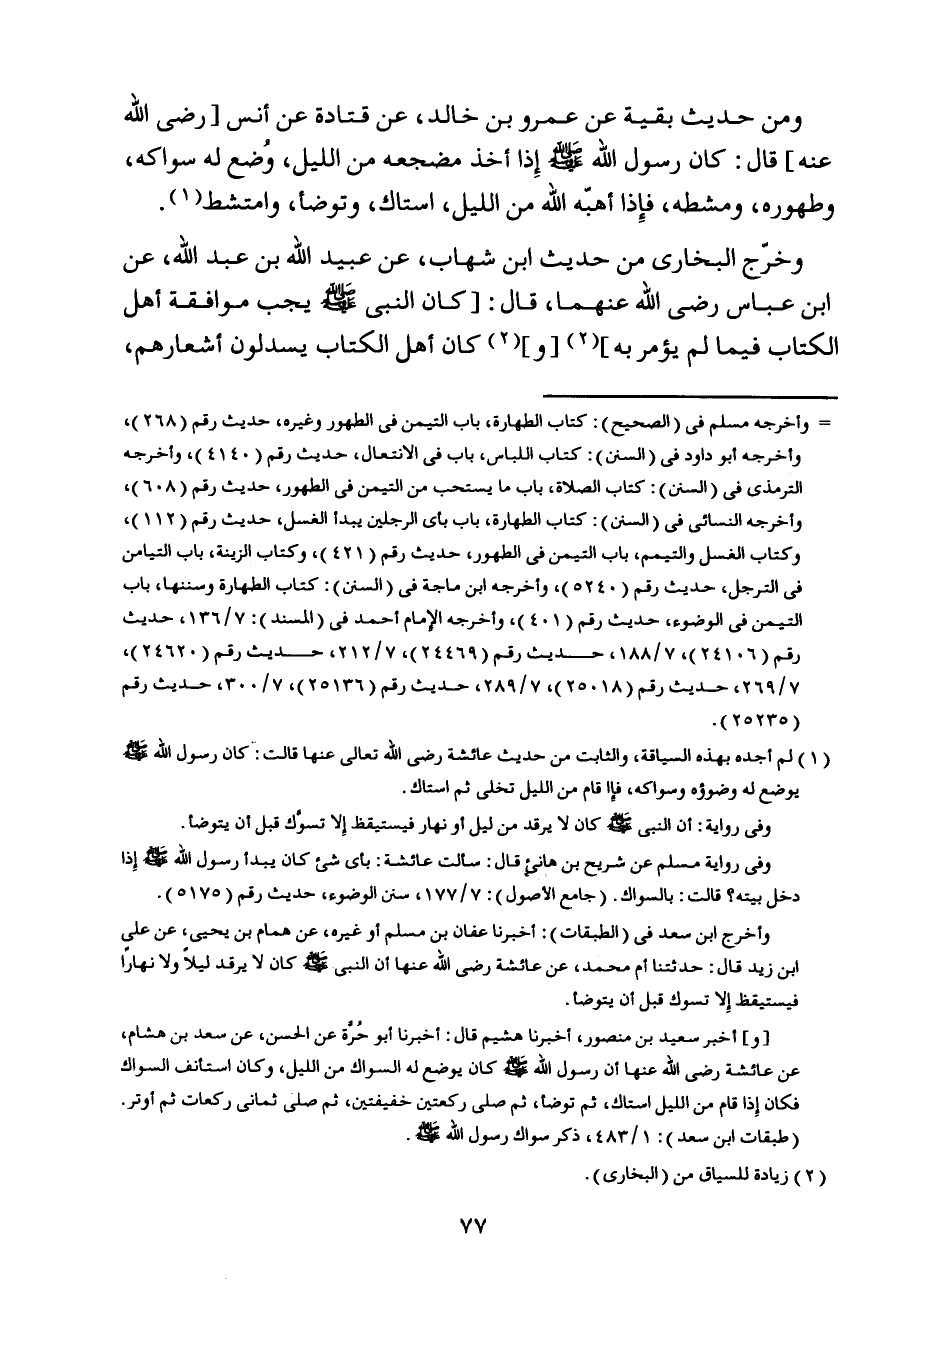 ومن حديث بقية عن عمرو بن خالد، عن قتادة عن أنس [رضى الله
عنه] قال: كان رسول الله ﷺ إذا أخذ مضجعه من الليل، وُضع له سواكه،
وطهوره، ومشطه، فإذا أهبّه الله من الليل، استاك، وتوضأ، وامتشط(١).
وخرّج البخارى من حديث ابن شهاب، عن عبيد الله بن عبد الله، عن
ابن عباس رضى الله عنهما، قال: [كان النبى ﷺ يجب موافقة أهل
الكتاب فيما لم يؤمر به](٢) [و](٢) كان أهل الكتاب يسدلون أشعارهم،
= وأخرجه مسلم فى (الصحيح): كتاب الطهارة، باب التيمن فى الطهور وغيره، حديث رقم (٢٦٨)،
وأخرجه أبو داود فى (السنن): كتاب اللباس، باب فى الانتعال، حديث رقم (٤١٤٠)، وأخرجه
الترمذى فى (السنن): كتاب الصلاة، باب ما يستحب من التيمن فى الطهور، حديث رقم (٦٠٨)،
وأخرجه النسائى فى (السنن): كتاب الطهارة، باب بأى الرجلين يبدأ الغسل، حديث رقم (١١٢)،
وكتاب الغسل والتيمم، باب التيمن فى الطهور، حديث رقم (٤٢١)، وكتاب الزينة، باب التيامن
فى الترجل، حديث رقم (٥٢٤٠)، وأخرجه ابن ماجة فى (السنن): كتاب الطهارة وسننها، باب
التيمن فى الوضوء، حديث رقم (٤٠١)، وأخرجه الإمام أحمد فى (المسند): ١٣٦/٧، حديث
رقم (٢٤١٠٦)، ١٨٨/٧، حديث رقم (٢٤٤٦٩)، ٢١٢/٧، حديث رقم (٢٤٦٢٠)،
٢٦٩/٧، حديث رقم (٢٥٠١٨)، ٢٨٩/٧، حديث رقم (٢٥١٣٦)، ٣٠٠/٧، حديث رقم
(٢٥٢٣٥).
(١) لم أجده بهذه السياقة، والثابت من حديث عائشة رضى الله تعالى عنها قالت: كان رسول الله ﷺ
يوضع له وضوؤه وسواكه، فإا قام من الليل تخلى ثم استاك.
وفى رواية: أن النبى ﷺ كان لا يرقد من ليل أو نهار فيستيقظ إلا تسوَّك قبل أن يتوضأ.
وفى رواية مسلم عن شريح بن هانئ قال: سألت عائشة: بأى شئ كان يبدأ رسول الله ﷺ إذا
دخل بيته؟ قالت: بالسواك. (جامع الأصول): ١٧٧/٧، سنن الوضوء، حديث رقم (٥١٧٥).
وأخرج ابن سعد فى (الطبقات): أخبرنا عفان بن مسلم أو غيره، عن همام بن يحيى، عن على
ابن زيد قال: حدثتنا أم محمد، عن عائشة رضى الله عنها أن النبى ﷺ كان لا يرقد ليلاً ولا نهاراً
فيستيقظ إلا تسوك قبل أن يتوضأ.
[و] أخبر سعيد بن منصور، أخبرنا هشيم قال: أخبرنا أبو حُرَّة عن الحسن، عن سعد بن هشام،
عن عائشة رضى الله عنها أن رسول الله ﷺ كان يوضع له السواك من الليل، وكان استأنف السواك
فكان إذا قام من الليل استاك، ثم توضأ، ثم صلى ركعتين خفيفتين، ثم صلى ثمانى ركعات ثم أوتر.
(طبقات ابن سعد): ٤٨٣/١، ذكر سواك رسول الله ﷺ.
(٢) زيادة للسياق من (البخارى).
٧٧